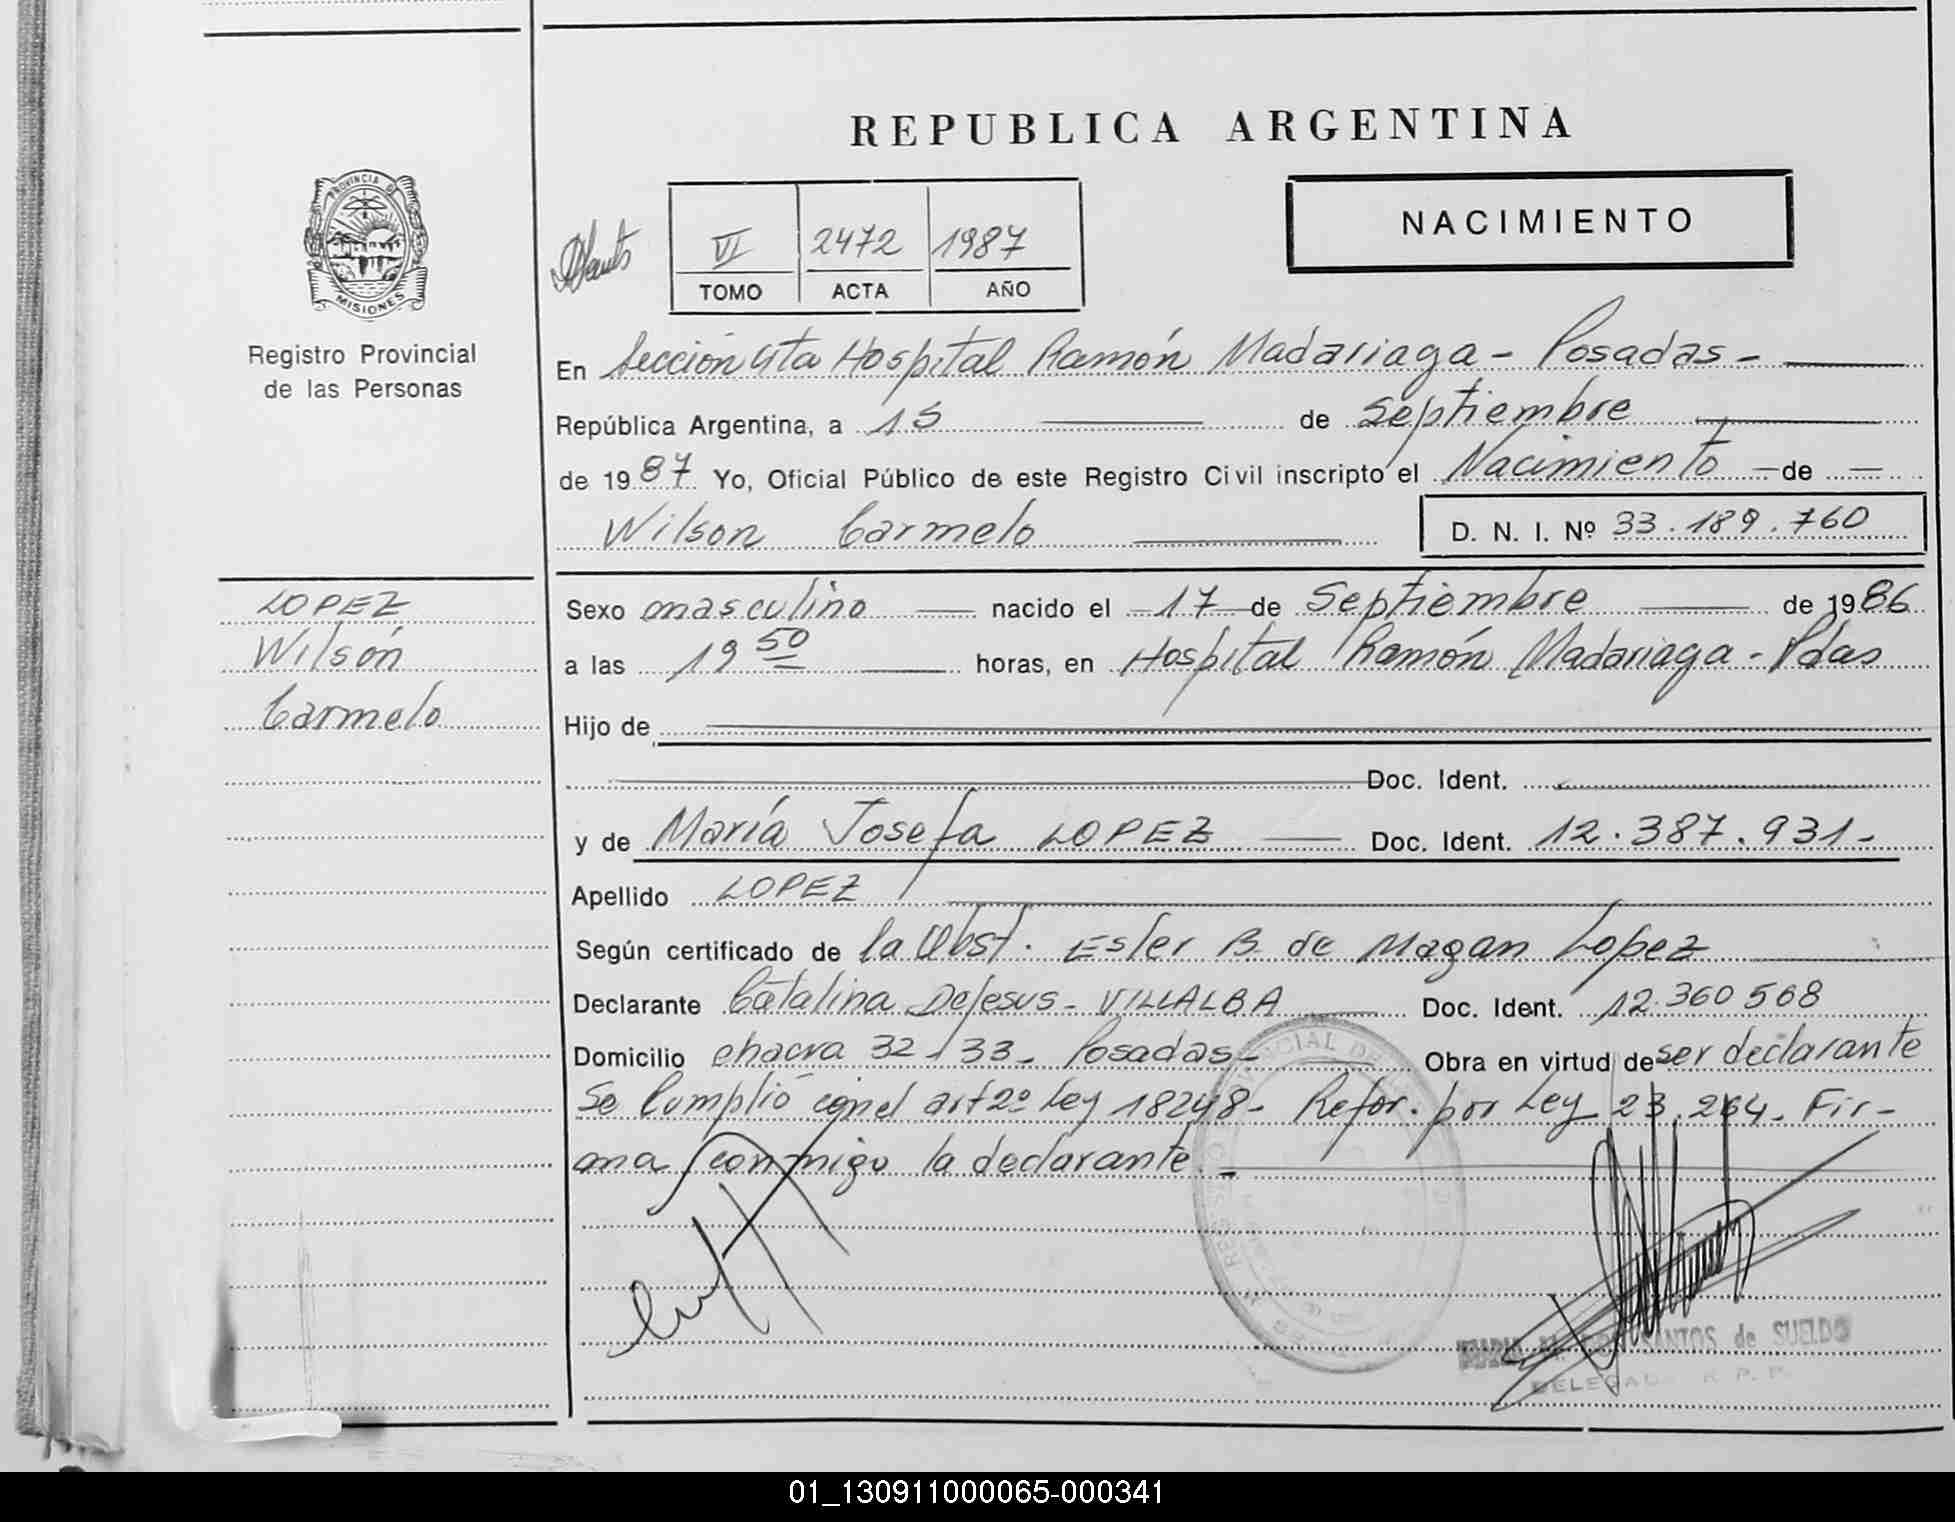 REPUBLICA ARGENTINA
PROVINCIA DE
MISIONES
Registro Provincial
de las Personas
VI 2472 1987
TOMO ACTA AÑO
NACIMIENTO
En Sección 4ta Hospital Ramón Madariaga - Posadas -
República Argentina, a 15 de Septiembre
de 1987 Yo, Oficial Público de este Registro Civil inscripto el Nacimiento - de -
Wilson Carmelo
D. N. I. Nº 33.189.760
LOPEZ
Wilsón
Carmelo
Sexo masculino nacido el 17 de Septiembre de 1986
a las 19 50 horas, en Hospital Ramón Madariaga - Pdas
Hijo de
Doc. Ident.
y de María Josefa LOPEZ Doc. Ident. 12.387.931-
Apellido LOPEZ
Según certificado de la Obst. Ester B. de Magan Lopez
Declarante Catalina DeJesus - VILLALBA Doc. Ident. 12.360 568
Domicilio chacra 32-33- Posadas- Obra en virtud de ser declarante
Se Cumplió con el art 2º Ley 18248- Refor. por Ley 23.264. Fir-
ma conmigo la declarante.-
SANTOS de SUELDO
01_130911000065-000341